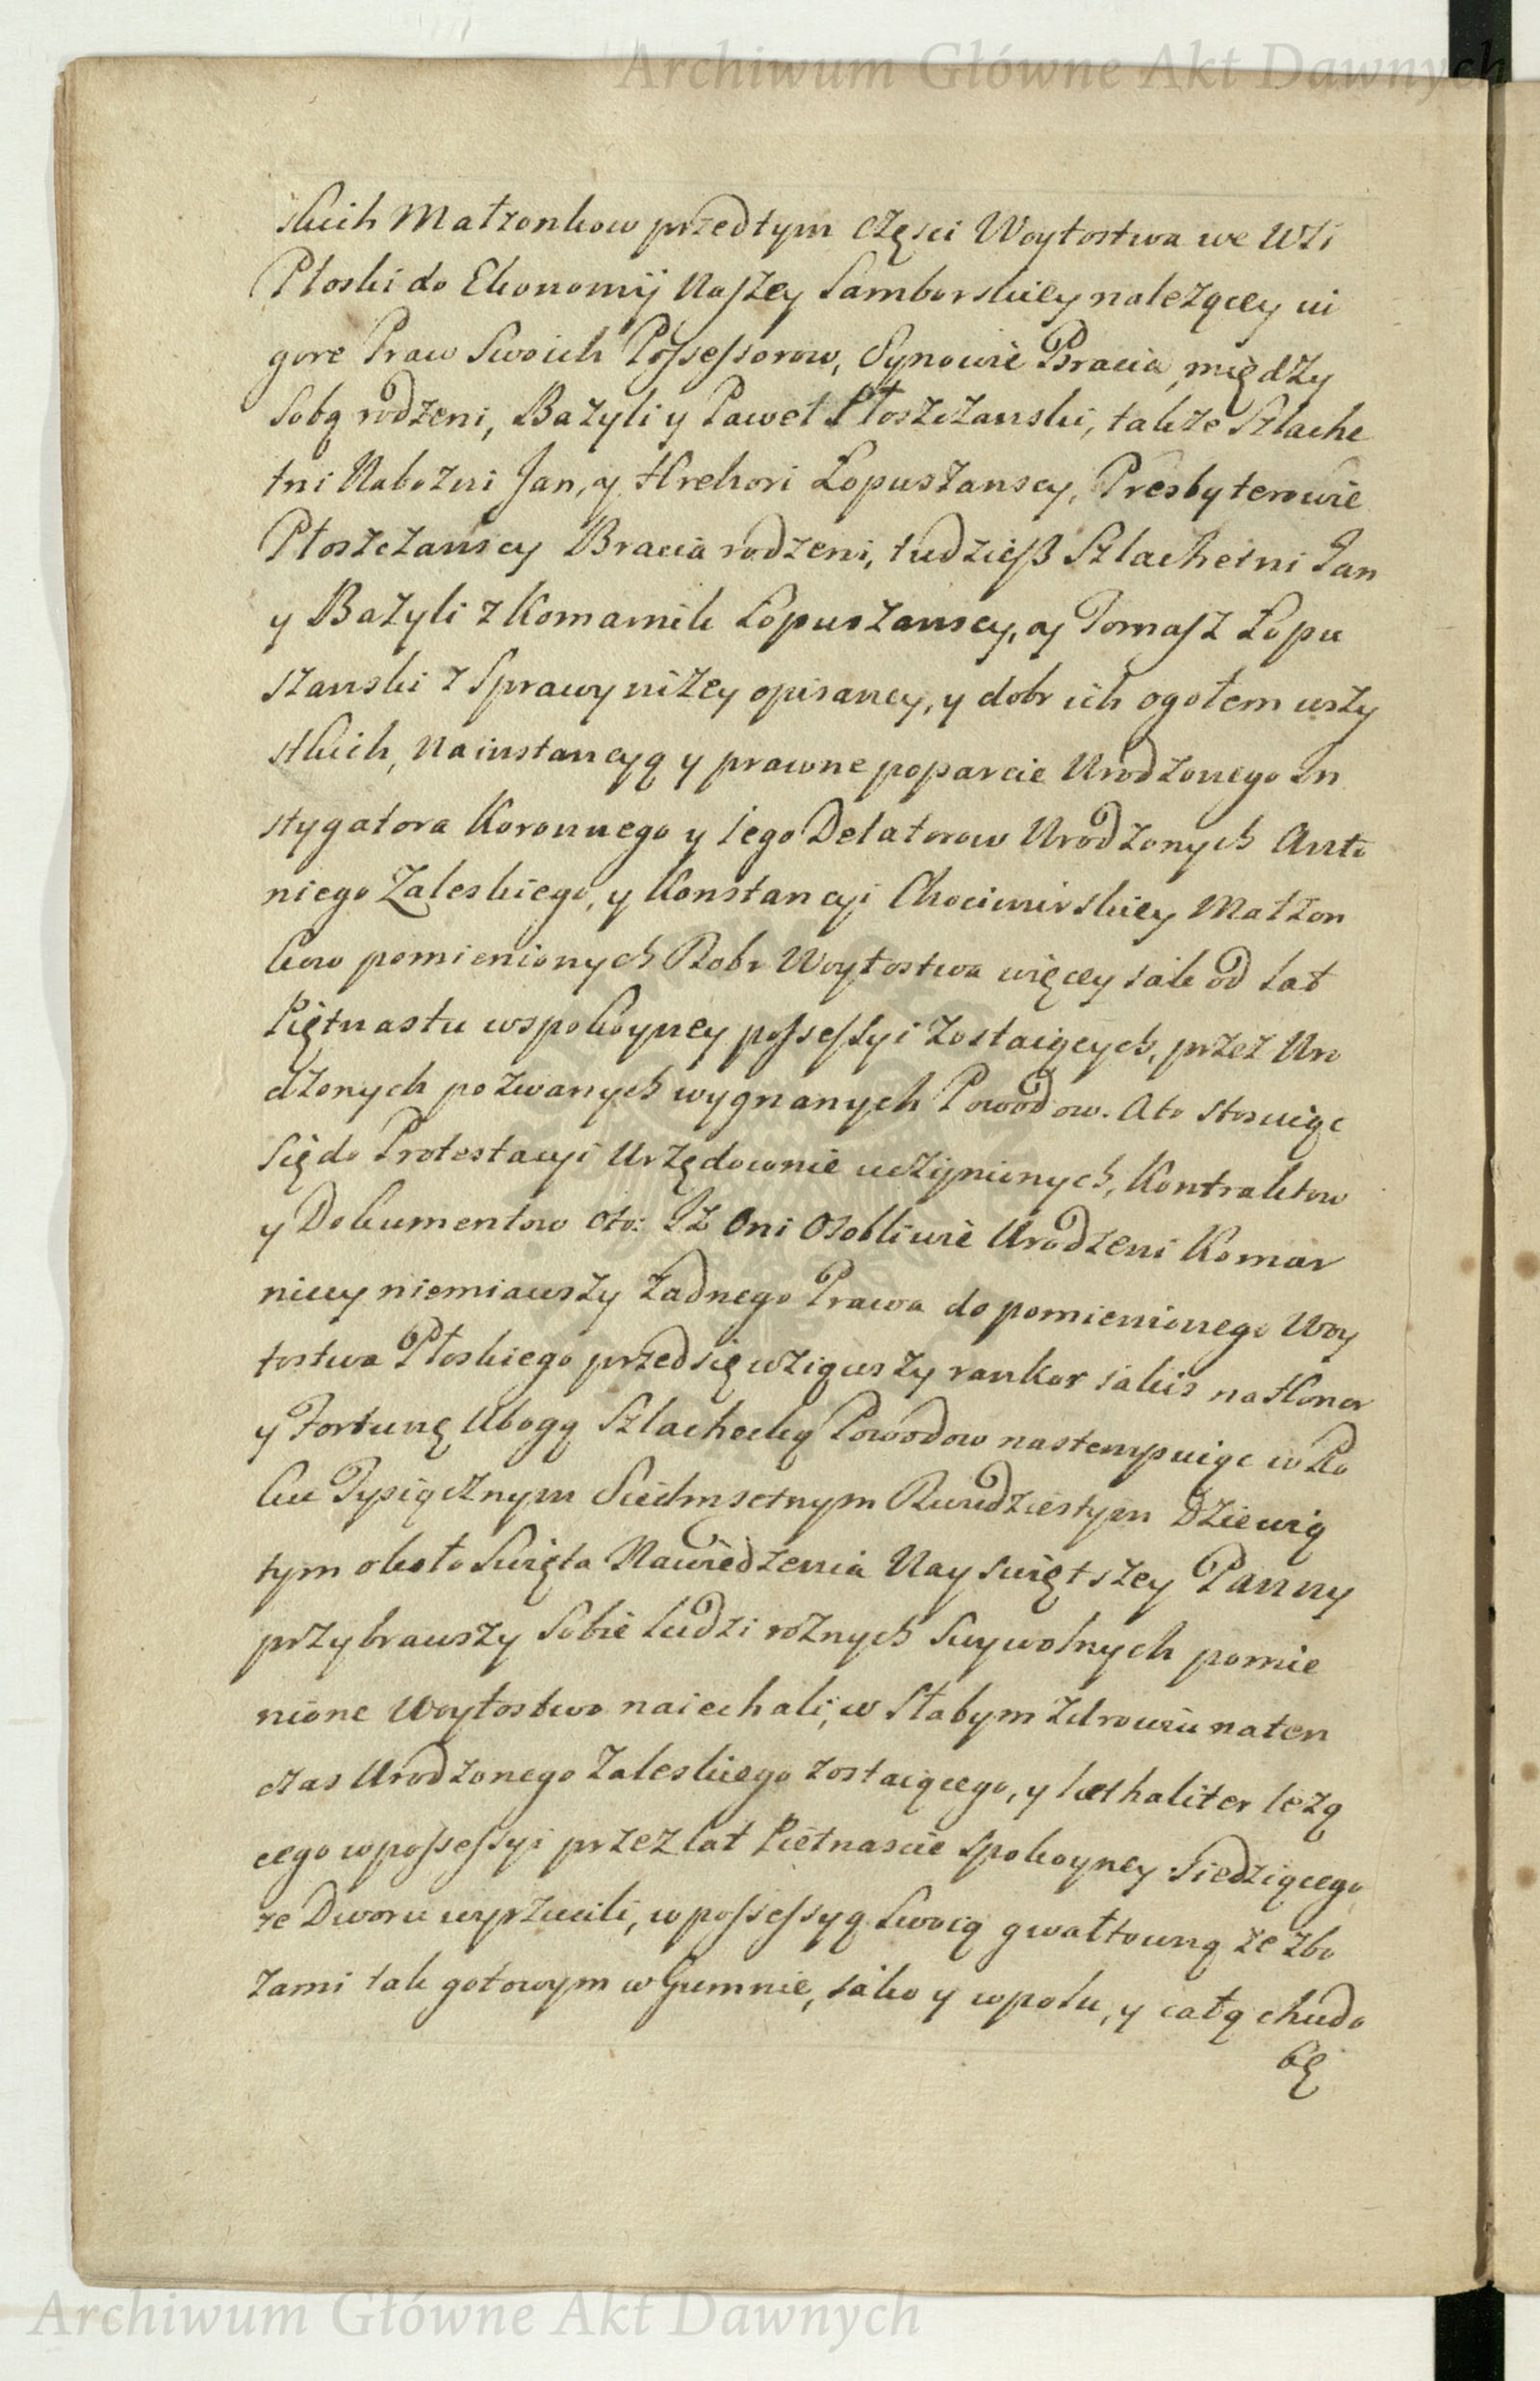 Archiwum Główne Akt Dawnych
skich Małzonkow przedtym częsci Woytostwa we Wsi
Płoski do Ekonomij Naszey Samborskiey nalezącey vi
gore Praw Swoich Possessorow, Synowie Bracia między
Sobą rodzeni, Bazyli y Paweł Płoszczanski, także Szlache
tni Nabozni Jan, y Hrehori Łopuszanscy, Presbyterowie
Płoszczanscy Bracia rodzeni, tudzieß Szlachetni Jan
y Bazyli z Komarnik Łopuszanscy, y Tomasz Łopu
szanski z Sprawy niżey opisaney, y dobr ich ogołem wszy
stkich, Na instancyą y prawne poparcie Urodzonego In
stygatora Koronnego y iego Delatorow Urodzonych Anto
niego Zaleskiego, y Konstancyi Chocimirskiey Małzon
kow pomienionych Dobr Woytostwa więcey iak od lat
Piętnastu w spokoyney possessyi zostaiących, przez Uro
dzonych pozwanych wygnanych Powodow. A to stosuiąc
Się do Protestacyi Urzędownie uczynionych, Kontraktow
y Dokumentow oto: Iż Oni Osobliwie Urodzeni Komar
niccy niemiawszy żadnego Prawa do pomienionego Woy
tostwa Płoskiego przedsięwziąwszy rankor iakis na Honor
y Fortunę Ubogą Szlachecką Powodow nastempuiąc w Ro
ku Tysiącznym Siedmsetnym Dwudziestym Dziewią
tym około Swięta Nawiedzenia Nayswiętszey Panny
przybrawszy Sobie ludzi roznych Swywolnych pomie
nione Woytostwo naiechali, w Słabym zdrowiu naten
czas Urodzonego Zaleskiego zostaiącego, y lœthaliter leżą
cego w possessyi przez lat Pietnascie spokoyney Siedzącego
ze Dworu wyrzucili, w possessyą Swoią gwałtowną ze zbo
żami tak gotowym w Gumnie, iako y w polu, y całą chudo
bę
Archiwum Główne Akt Dawnych